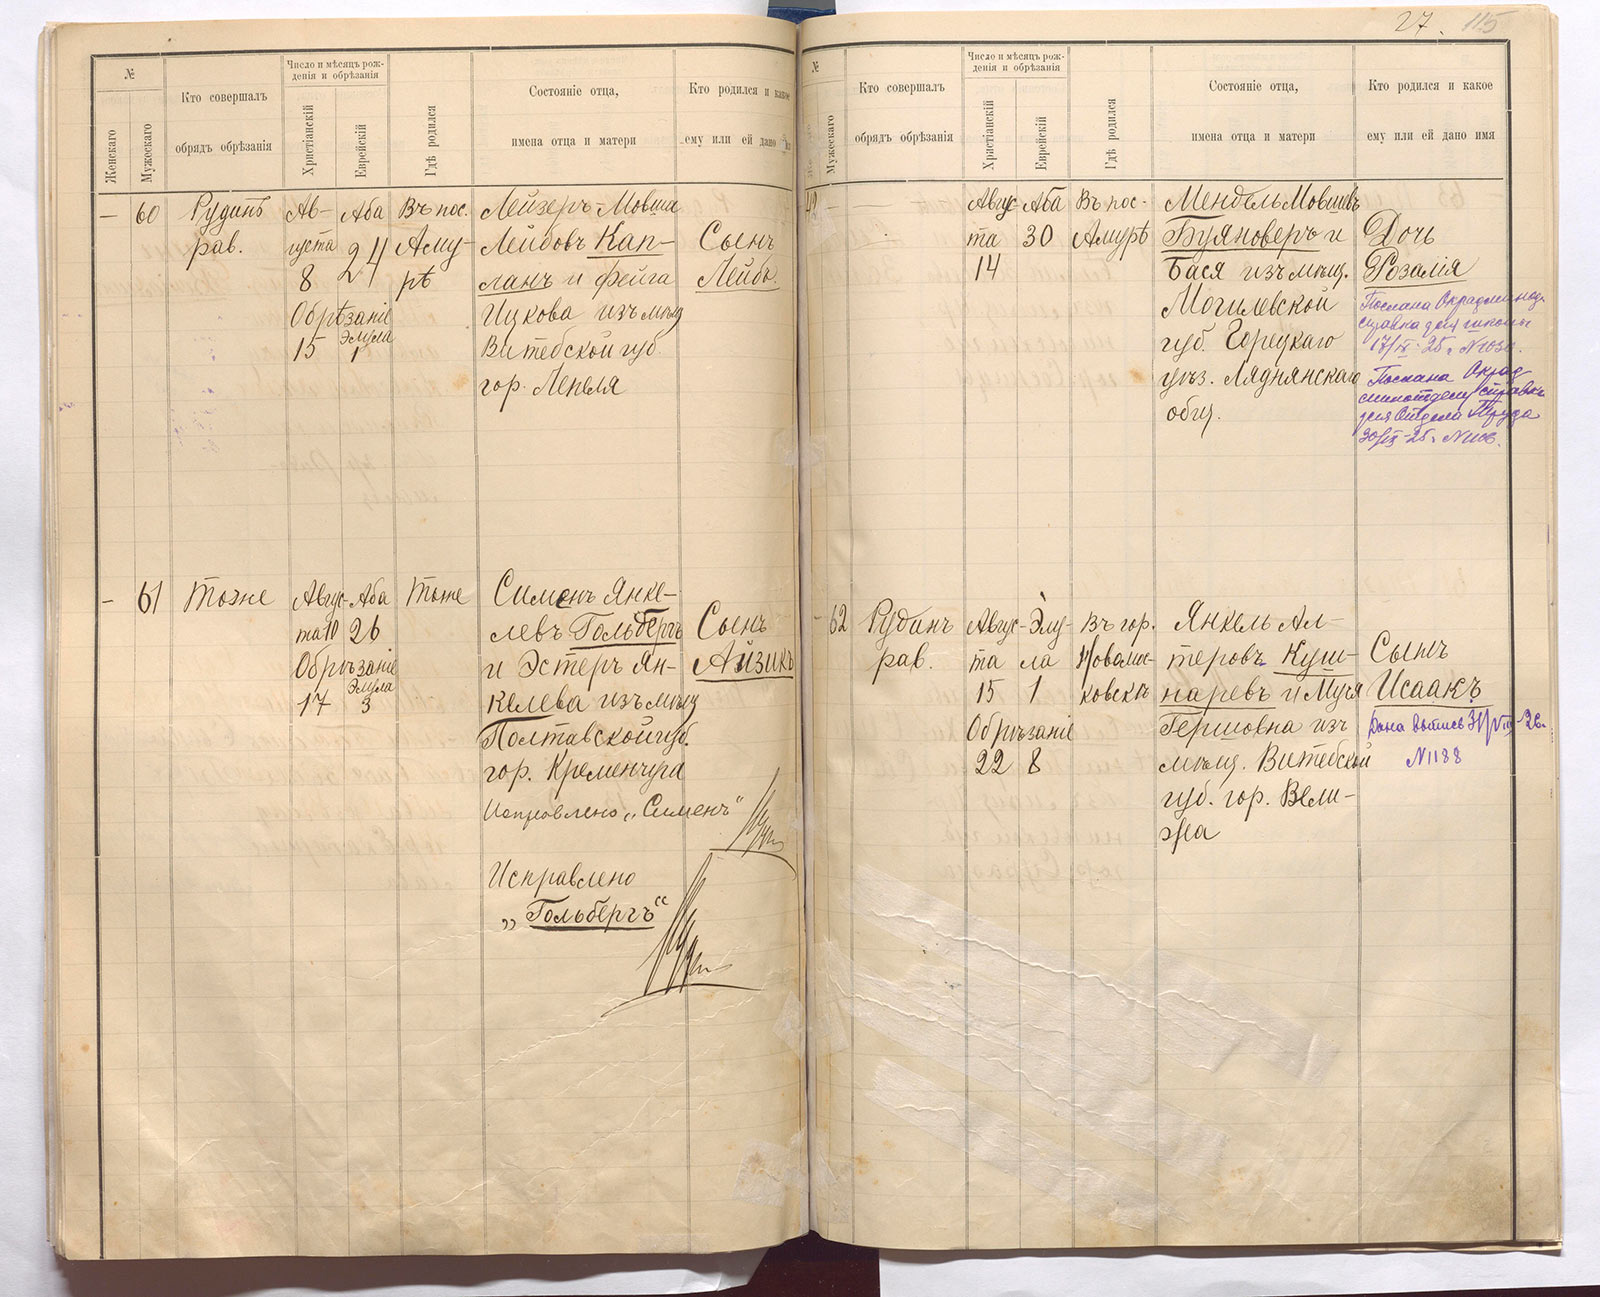 27. 115
№
Женскаго
Мужескаго
Кто совершалъ
обрядъ обрѣзанія
Число и мѣсяцъ рож-
денія и обрѣзанія
Христіанскій
Еврейскій
Гдѣ родился
Состояніе отца,
имена отца и матери
Кто родился и какое
ему или ей дано
— 60
Рудинъ
рав.
Ав-
густа
8
Обрѣзаніе
15
Аба
24
Элула
1
Въ пос.
Аму-
рѣ
Лейзеръ-Мовша
Лейбовъ Кап-
ланъ и Фейга
Ицкова изъ мѣщ
Витебской губ.
гор. Лепеля
Сынъ
Лейба.
— 61
Тоже
Авгус-
та 10
Обрѣзаніе
17
Аба
26
Элула
3
Тоже
Сименъ Янке-
левъ Гольбергъ
и Эстеръ Ян-
келева изъ мѣщ
Полтавской губ.
гор. Кременчуга
Исправлено „Сименъ“
Исправлено
„Гольбергъ“
Сынъ
Айзикъ
№
Мужескаго
Кто совершалъ
обрядъ обрѣзанія
Число и мѣсяцъ рож-
денія и обрѣзанія
Христіанскій
Еврейскій
Гдѣ родился
Состояніе отца,
имена отца и матери
Кто родился и какое
ему или ей дано имя
Авгус-
та
14
Аба
30
Въ пос.
Амурѣ
Мендель Мовшевъ
Буяноверъ и
Бася изъ мѣщ.
Могилевской
губ. Горецкаго
уѣз. Ляднянскаго
общ.
Дочь
Розалія
Послана
справка для школы
17/IX-25 г. №
Послана Окрад
справка
для Отдела Труда
30/IX-25 г. №
— 62
Рудинъ
рав.
Авгус-
та
15
Обрѣзаніе
22
Элу-
ла
1
8
Въ гор.
Новомос-
ковскѣ
Янкель Ал-
теровъ Куш-
наревъ и Муся
Гершовна изъ
мѣщ. Витебской
губ. гор. Вели-
жа
Сынъ
Исаакъ
Дана выпись 31/VII-26.
№ 1188